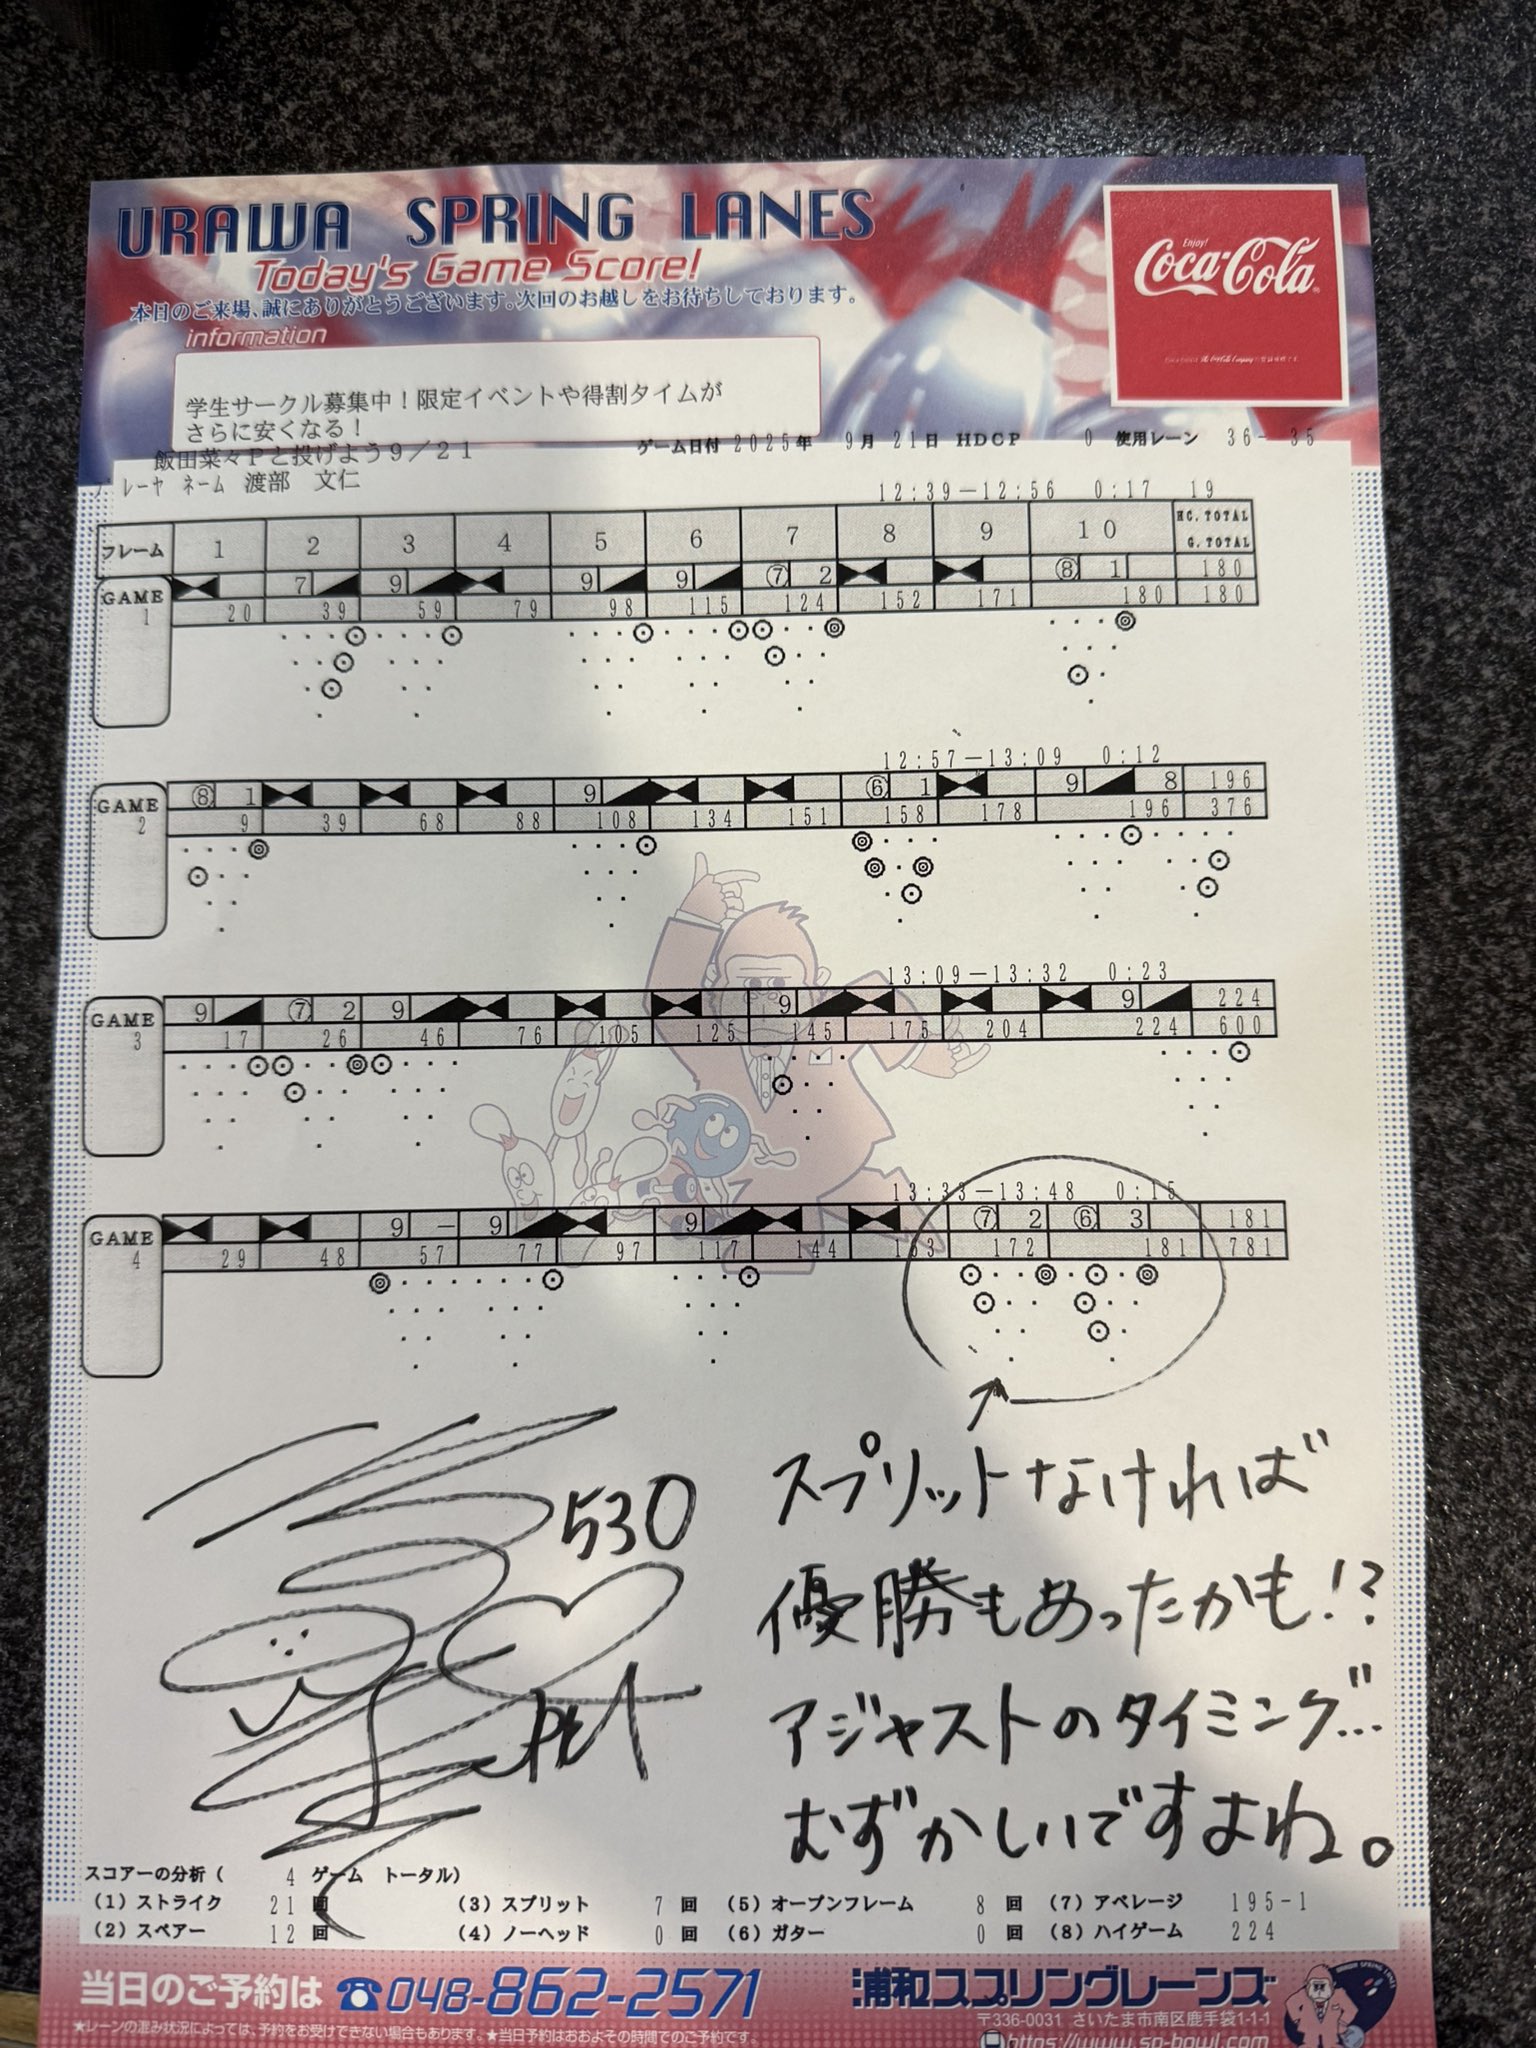 URAWA SPRING LANES
Today's Game Score!
本日のご来場、誠にありがとうございます。次回のお越しをお待ちしております。
information
Enjoy!
Coca-Cola
学生サークル募集中!限定イベントや得割タイムが
さらに安くなる!
飯田菜々Pと投げよう9/21
ゲーム日付 2025年 9月 21日 HDCP 0 使用レーン 36- 35
プレーヤ ネーム 渡部 文仁
12:39-12:56 0:17 19
フレーム 1 2 3 4 5 6 7 8 9 10 HC.TOTAL G.TOTAL
GAME 1
7 9 9 9 ⑦ 2 ⑧ 1 180
20 39 59 79 98 115 124 152 171 180 180
12:57-13:09 0:12
GAME 2
⑧ 1 9 ⑥ 1 9 8 196
9 39 68 88 108 134 151 158 178 196 376
13:09-13:32 0:23
GAME 3
9 ⑦ 2 9 9 9 224
17 26 46 76 105 125 145 175 204 224 600
13:33-13:48 0:15
GAME 4
9 - 9 9 ⑦ 2 ⑥ 3 181
29 48 57 77 97 117 144 163 172 181 781
530
スプリットなければ
優勝もあったかも!?
アジャストのタイミング…
むずかしいですよね。
スコアーの分析( 4 ゲーム トータル)
(1)ストライク 21 回 (3)スプリット 7 回 (5)オープンフレーム 8 回 (7)アベレージ 195-1
(2)スペアー 12 回 (4)ノーヘッド 0 回 (6)ガター 0 回 (8)ハイゲーム 224
当日のご予約は ☎048-862-2571 浦和スプリングレーンズ
★レーンの混み状況によっては、予約をお受けできない場合もあります。★当日予約はおおよその時間でのご予約です。
〒336-0031 さいたま市南区鹿手袋1-1-1
https://www.sp-bowl.com